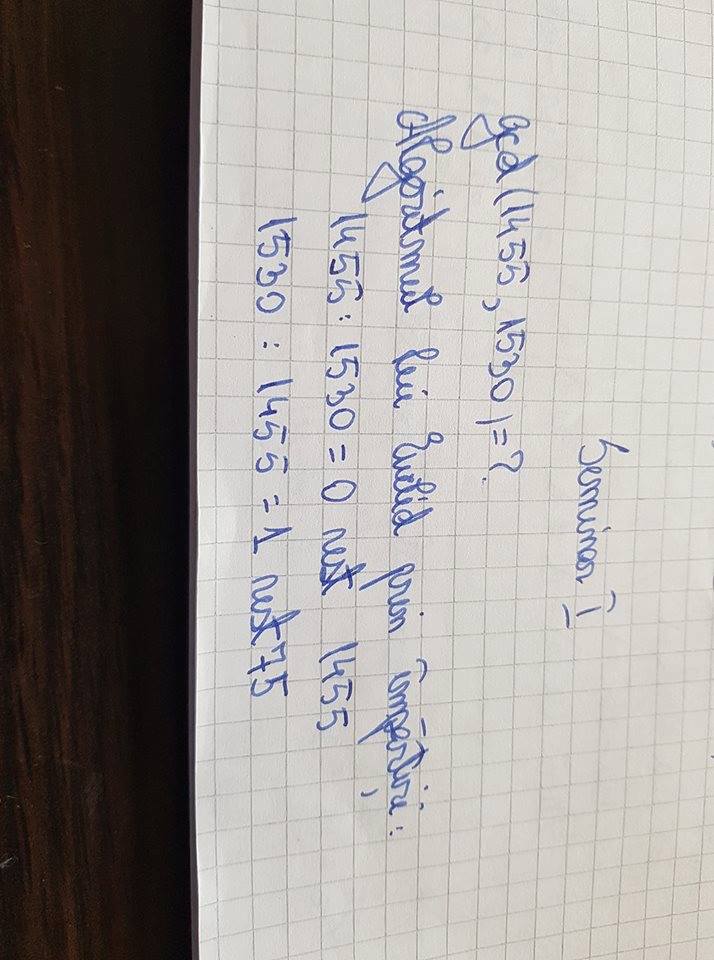 Seminar I
gcd(1455, 1530)=?
Algoritmul lui Euclid prin împărțiri:
1455 : 1530 = 0 rest 1455
1530 : 1455 = 1 rest 75